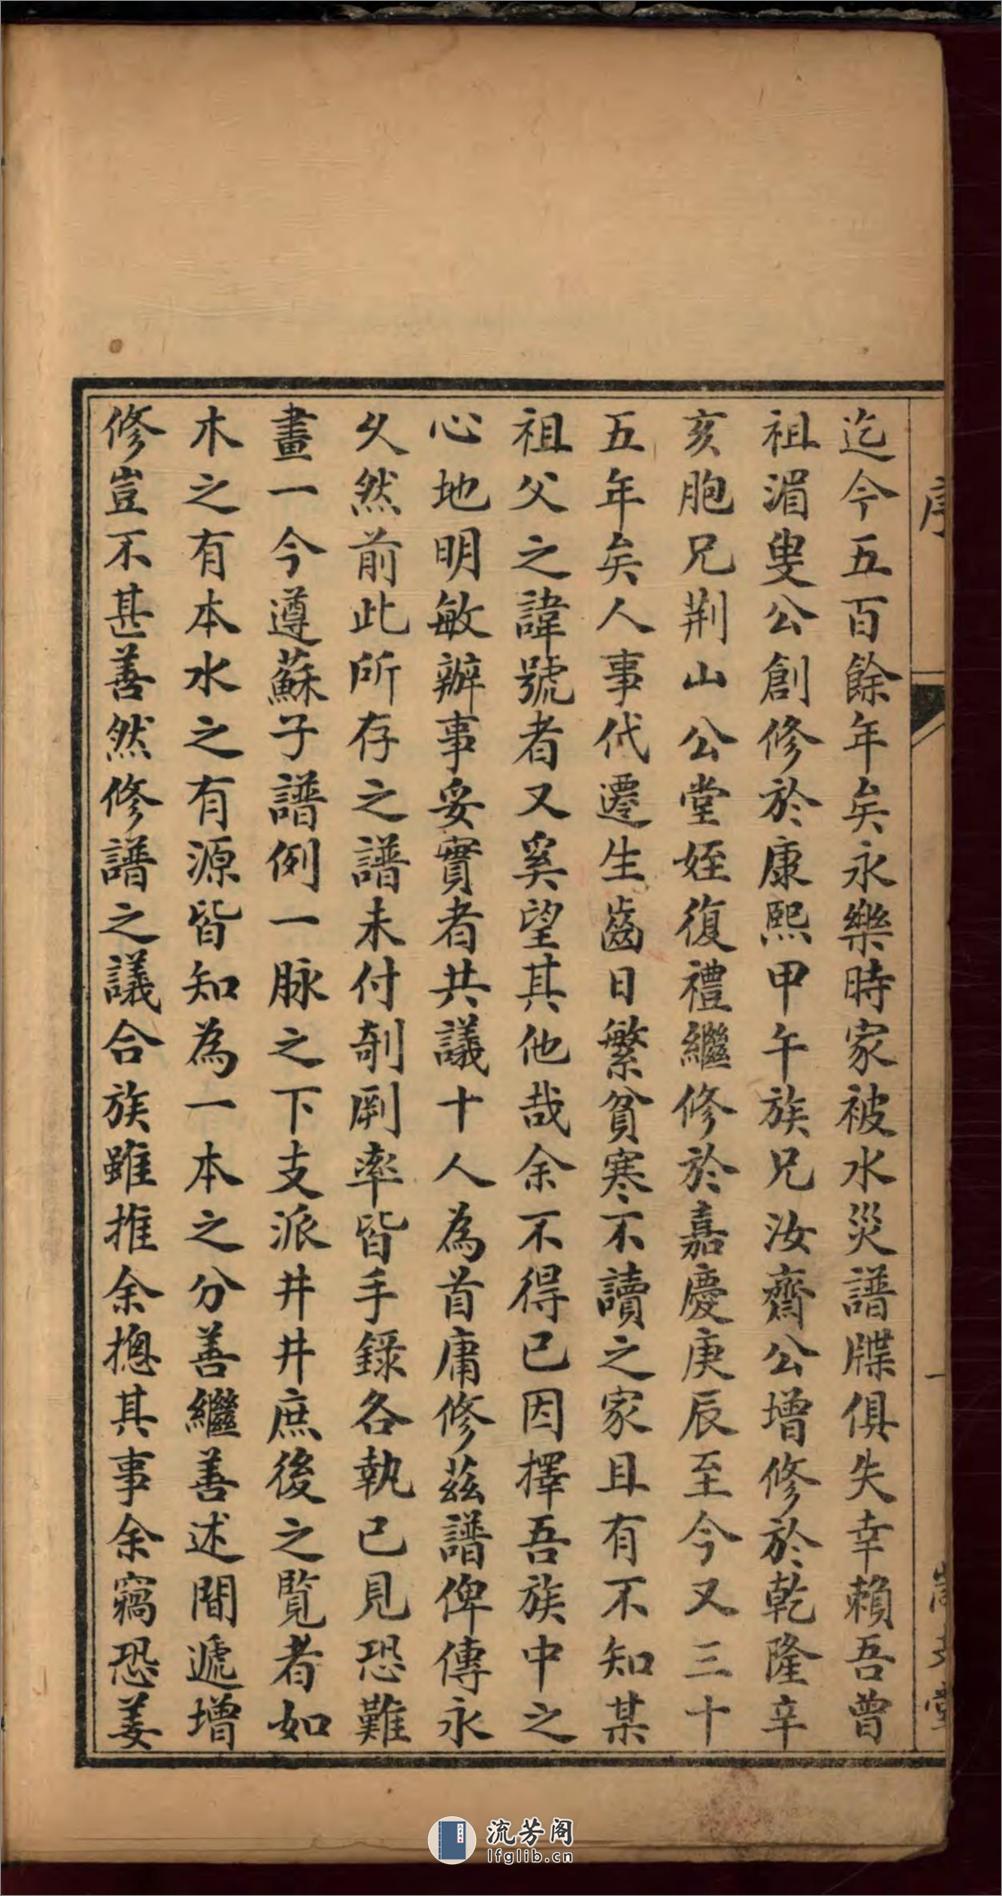 迄今五百餘年矣永樂時家被水災譜牒俱失幸賴吾曾
祖湄叟公創修於康熙甲午族兄汝齋公增修於乾隆辛
亥胞兄荆山公堂姪復禮繼修於嘉慶庚辰至今又三十
五年矣人事代遷生齒日繁貧寒不讀之家且有不知某
祖父之諱號者又奚望其他哉余不得已因擇吾族中之
心地明敏辦事妥實者共議十人為首庸修茲譜俾傳永
久然前此所存之譜未付剞劂率皆手錄各執已見恐難
畫一今遵蘇子譜例一脉之下支派井井庶後之覽者如
木之有本水之有源皆知為一本之分善繼善述間遞增
修豈不甚善然修譜之議合族雖推余摠其事余竊恐姜
序
一
流芳阁
lfglib.cn